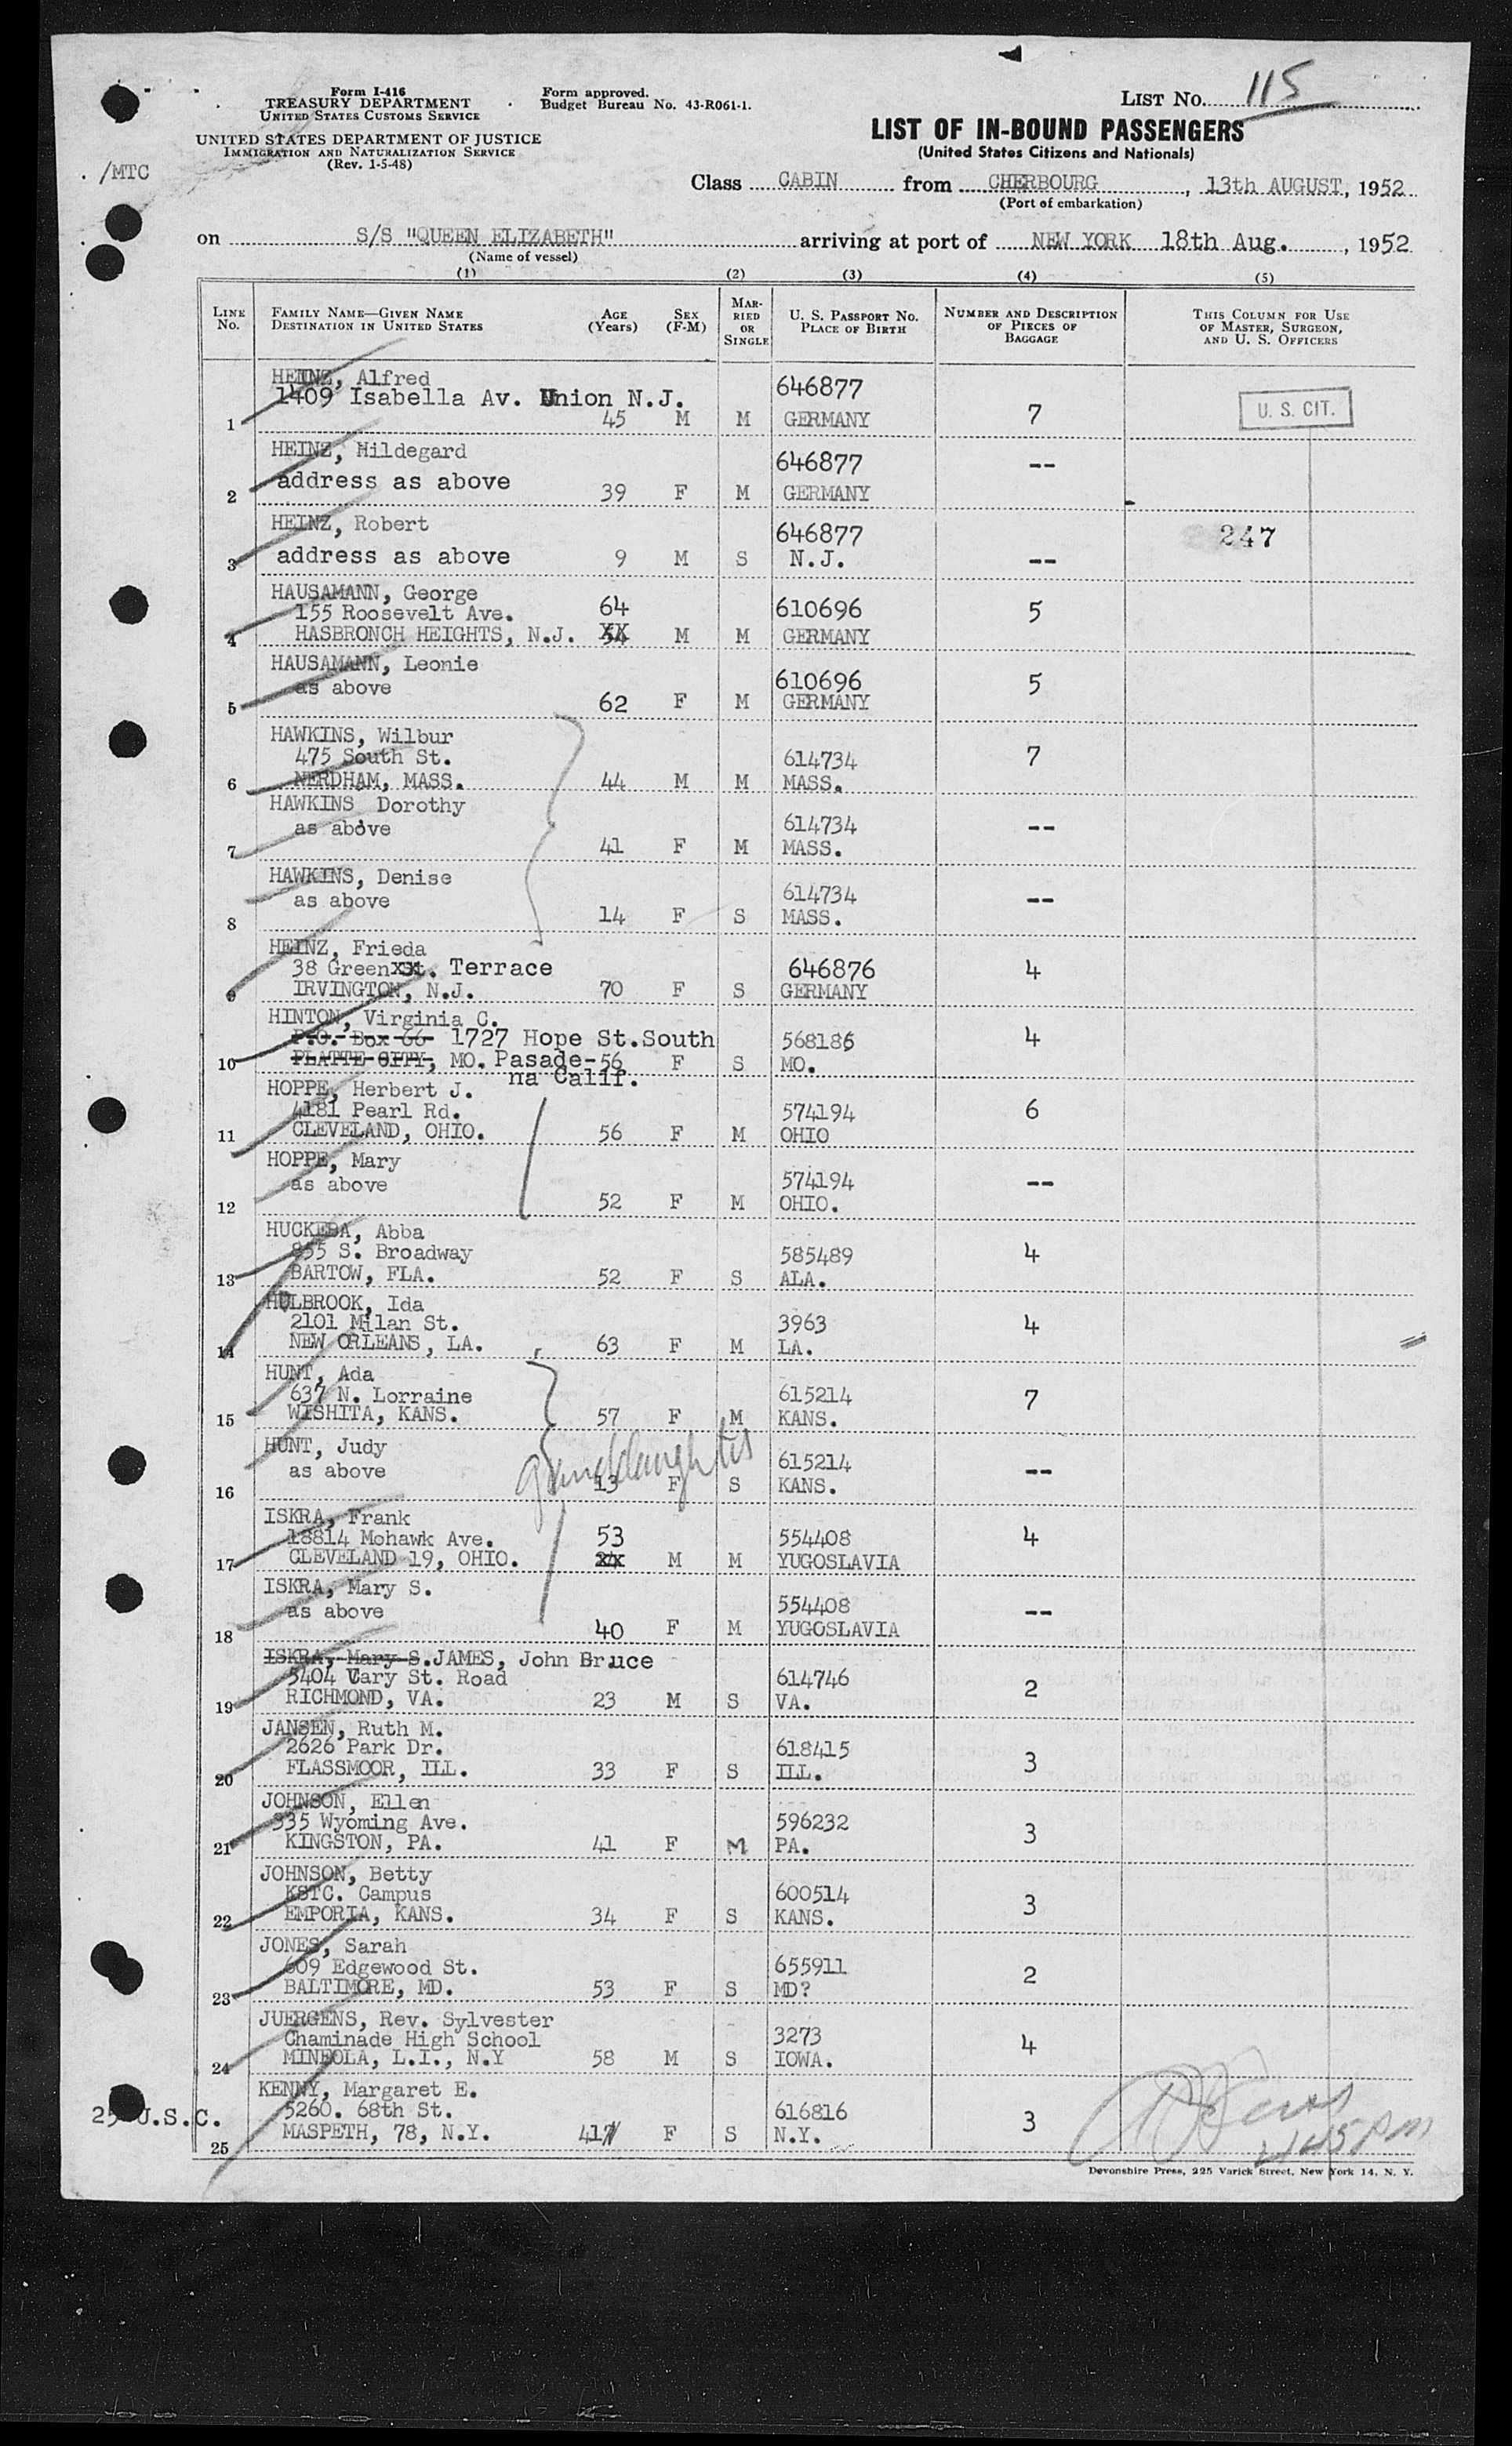 Form I-416
TREASURY DEPARTMENT
UNITED STATES CUSTOMS SERVICE
Form approved.
Budget Bureau No. 43-R061-1.
LIST NO. 115
UNITED STATES DEPARTMENT OF JUSTICE
IMMIGRATION AND NATURALIZATION SERVICE
(Rev. 1-5-48)
/MTC
LIST OF IN-BOUND PASSENGERS
(United States Citizens and Nationals)
Class CABIN from CHERBOURG, 13th AUGUST, 1952
(Port of embarkation)
on S/S "QUEEN ELIZABETH" arriving at port of NEW YORK 18th Aug., 1952
(Name of vessel)
(1) (2) (3) (4) (5)
LINE No. FAMILY NAME—GIVEN NAME DESTINATION IN UNITED STATES AGE (Years) SEX (F-M) MARRIED OR SINGLE U. S. PASSPORT NO. PLACE OF BIRTH NUMBER AND DESCRIPTION OF PIECES OF BAGGAGE THIS COLUMN FOR USE OF MASTER, SURGEON, AND U. S. OFFICERS
HEINZ, Alfred 646877
1409 Isabella Av. Union N.J.
1 45 M M GERMANY 7 U. S. CIT.
HEINZ, Hildegard 646877 --
address as above
2 39 F M GERMANY
HEINZ, Robert 646877 247
3 address as above 9 M S N.J. --
HAUSAMANN, George 64
155 Roosevelt Ave. 610696 5
4 HASBRONCH HEIGHTS, N.J. 54 M M GERMANY
HAUSAMANN, Leonie
as above 610696 5
5 62 F M GERMANY
HAWKINS, Wilbur
475 South St. 614734 7
6 NERDHAM, MASS. 44 M M MASS.
HAWKINS Dorothy
as above 614734 --
7 41 F M MASS.
HAWKINS, Denise
as above 614734 --
8 14 F S MASS.
HEINZ, Frieda
38 Green xSt. Terrace 646876 4
9 IRVINGTON, N.J. 70 F S GERMANY
HINTON, Virginia C.
P.O. Box 66 1727 Hope St.South 568186 4
10 PLATTE CITY, MO. Pasade- 56 F S MO.
na Calif.
HOPPE, Herbert J.
4181 Pearl Rd. 574194 6
11 CLEVELAND, OHIO. 56 F M OHIO
HOPPE, Mary
as above 574194 --
12 52 F M OHIO.
HUCKEBA, Abba
855 S. Broadway 585489 4
13 BARTOW, FLA. 52 F S ALA.
HULBROOK, Ida
2101 Milan St. 3963 4
14 NEW ORLEANS, LA. 63 F M LA.
HUNT, Ada
637 N. Lorraine 615214 7
15 WISHITA, KANS. 57 F M KANS.
HUNT, Judy granddaughter
as above 615214 --
16 13 F S KANS.
ISKRA, Frank
18814 Mohawk Ave. 53 554408 4
17 CLEVELAND 19, OHIO. xx M M YUGOSLAVIA
ISKRA, Mary S.
as above 554408 --
18 40 F M YUGOSLAVIA
ISKRA, Mary S. JAMES, John Bruce
5404 Cary St. Road 614746 2
19 RICHMOND, VA. 23 M S VA.
JANSEN, Ruth M.
2626 Park Dr. 618415 3
20 FLASSMOOR, ILL. 33 F S ILL.
JOHNSON, Ellen
335 Wyoming Ave. 596232 3
21 KINGSTON, PA. 41 F M PA.
JOHNSON, Betty
KSTC. Campus 600514 3
22 EMPORIA, KANS. 34 F S KANS.
JONES, Sarah
609 Edgewood St. 655911 2
23 BALTIMORE, MD. 53 F S MD?
JUERGENS, Rev. Sylvester
Chaminade High School 3273 4
24 MINEOLA, L.I., N.Y 58 M S IOWA.
KENNY, Margaret E.
5260. 68th St. 616816 3
25 U.S.C.
25 MASPETH, 78, N.Y. 41 F S N.Y.
Devonshire Press, 225 Varick Street, New York 14, N. Y.